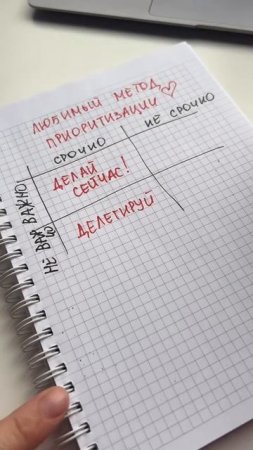 ЛЮБИМЫЙ МЕТОД
ПРИОРИТИЗАЦИИ
СРОЧНО
НЕ СРОЧНО
ВАЖНО
ДЕЛАЙ
СЕЙЧАС!
НЕ ВАЖ
НО
ДЕЛЕГИРУЙ